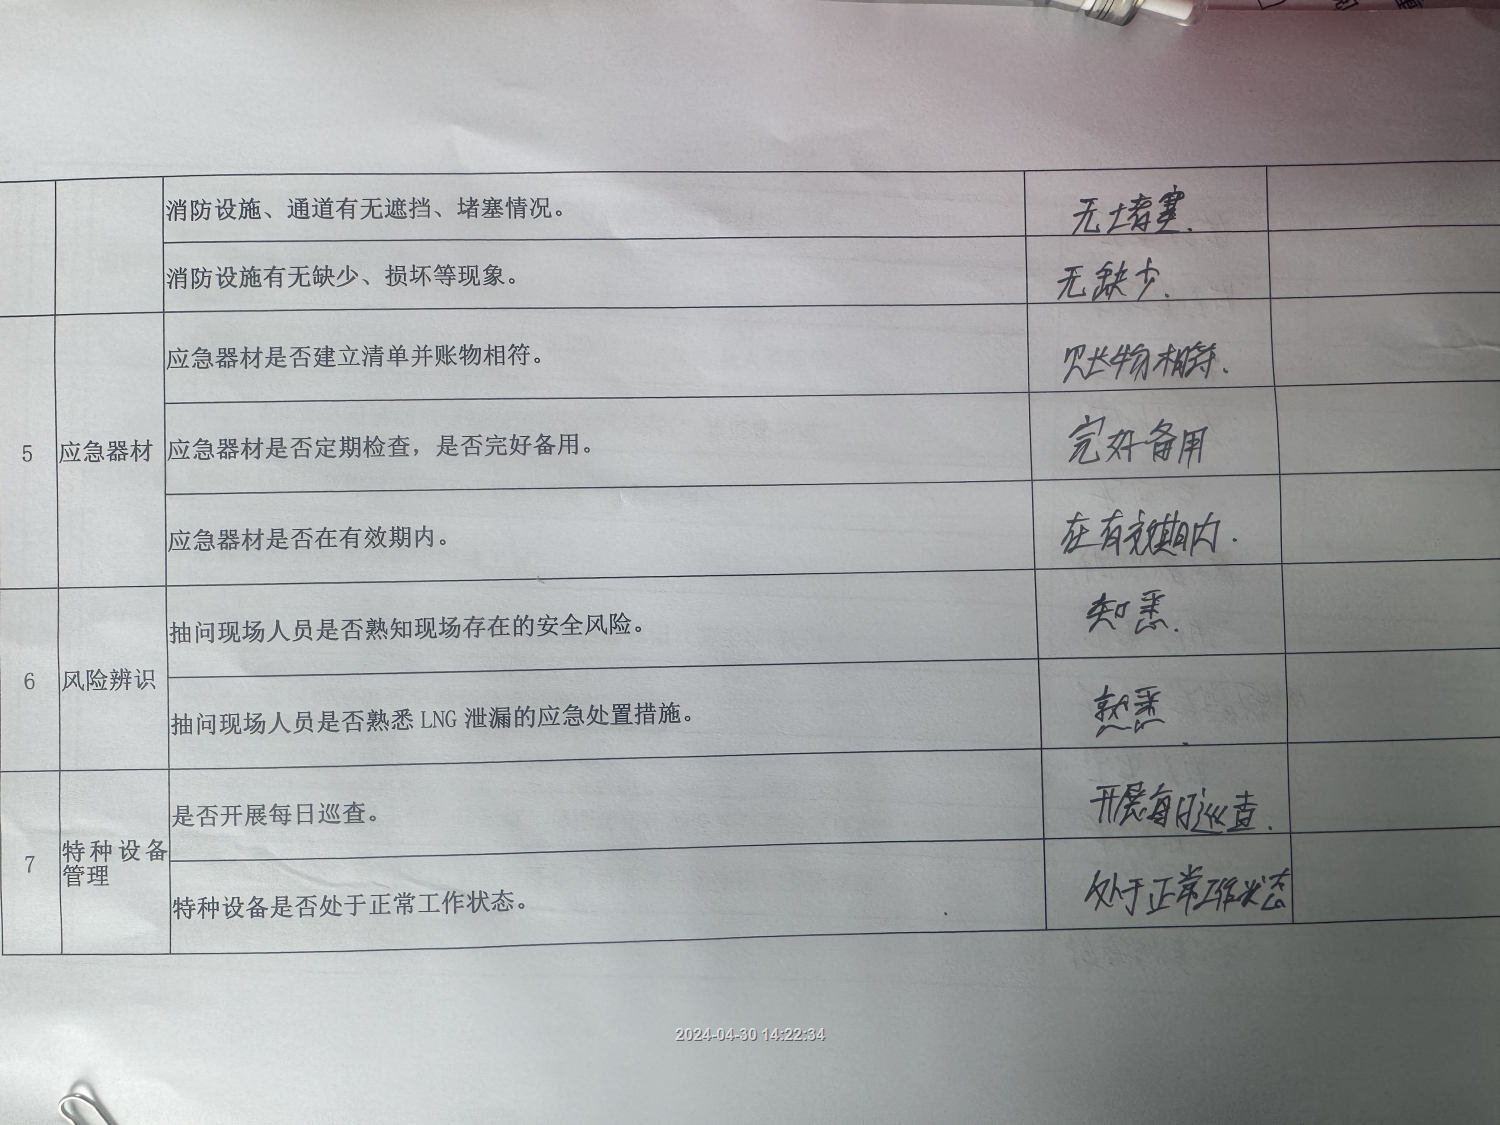 消防设施、通道有无遮挡、堵塞情况。
无堵塞.
消防设施有无缺少、损坏等现象。
无缺少.
5
应急器材
应急器材是否建立清单并账物相符。
账物相符.
应急器材是否定期检查，是否完好备用。
完好备用
应急器材是否在有效期内。
在有效期内.
6
风险辨识
抽问现场人员是否熟知现场存在的安全风险。
知悉.
抽问现场人员是否熟悉 LNG 泄漏的应急处置措施。
熟悉.
7
特种设备
管理
是否开展每日巡查。
开展每日巡查.
特种设备是否处于正常工作状态。
处于正常工作状态
2024-04-30 14:22:34